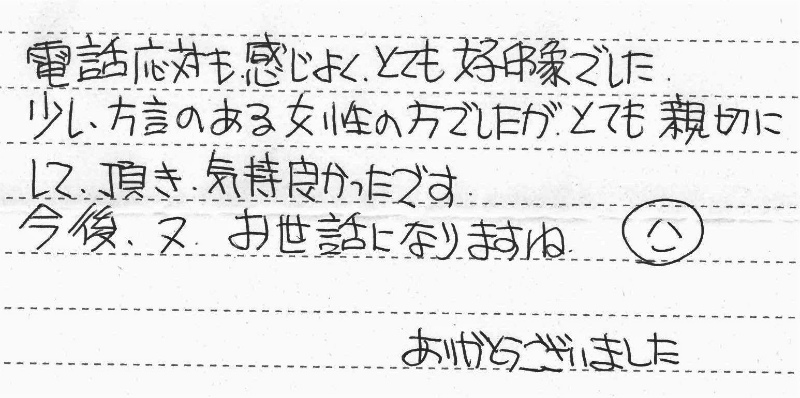 電話応対も感じよく、とても好印象でした.
少し、方言のある女性の方でしたが、とても親切に
して、頂き、気持良かったです
今後、又、お世話になりますね.
ありがとうございました